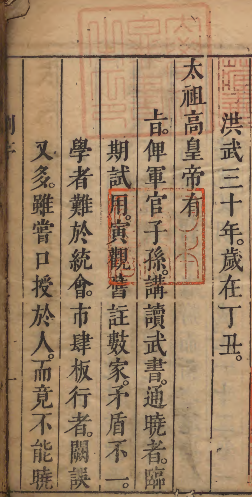 洪武三十年。歲在丁丑。
太祖高皇帝有
旨。俾軍官子孫。講讀武書。通曉者。臨
期試用。寅觀舊註數家。矛盾不一。
學者難於統會。市肆板行者。闕誤
又多。雖嘗口授於人。而竟不能曉